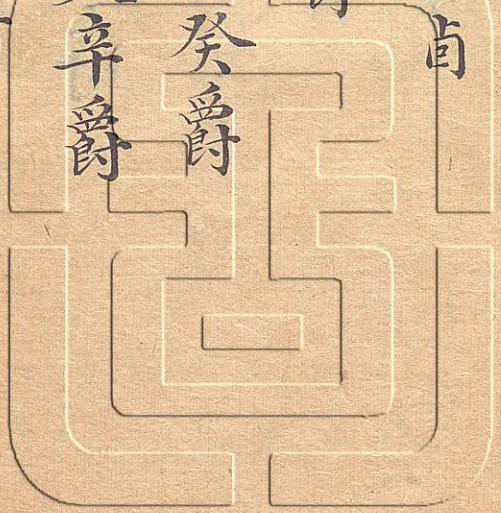 卣
癸爵
辛爵